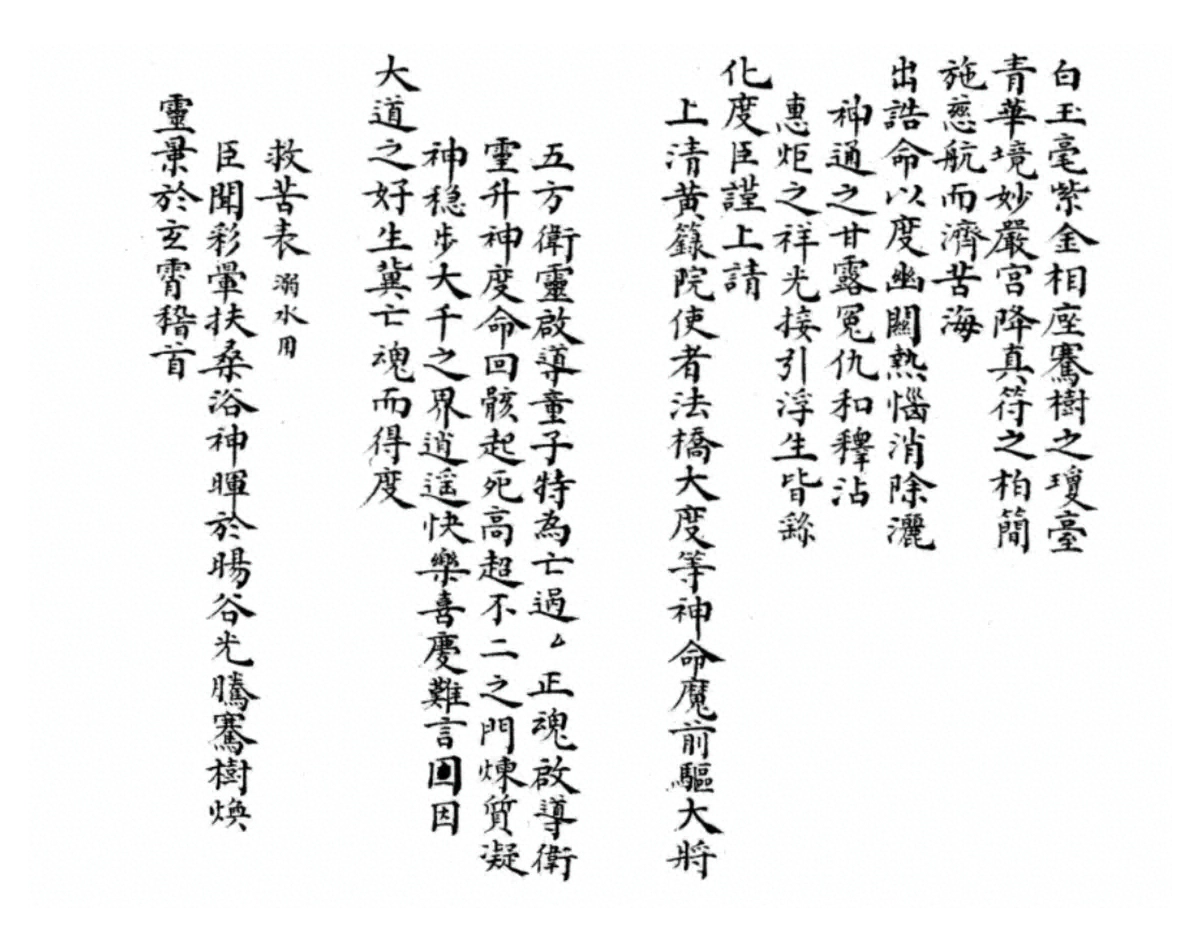 白玉毫紫金相座騫樹之瓊臺
青華境妙嚴宮降真符之柏簡
施慈航而濟苦海
出誥命以度幽關熱惱消除灑
神通之甘露冤仇和釋沾
惠炬之祥光接引浮生皆繇
化度臣謹上請
上清黃籙院使者法橋大度等神命魔前驅大將
五方衛靈啟導童子特為亡過厶正魂啟導衛
靈升神度命回骸起死高超不二之門煉質凝
神穩步大千之界逍遥快樂喜慶難言因
大道之好生冀亡魂而得度
救苦表溺水用
臣聞彩暈扶桑浴神暉於暘谷光騰騫樹煥
靈景於玄霄稽首